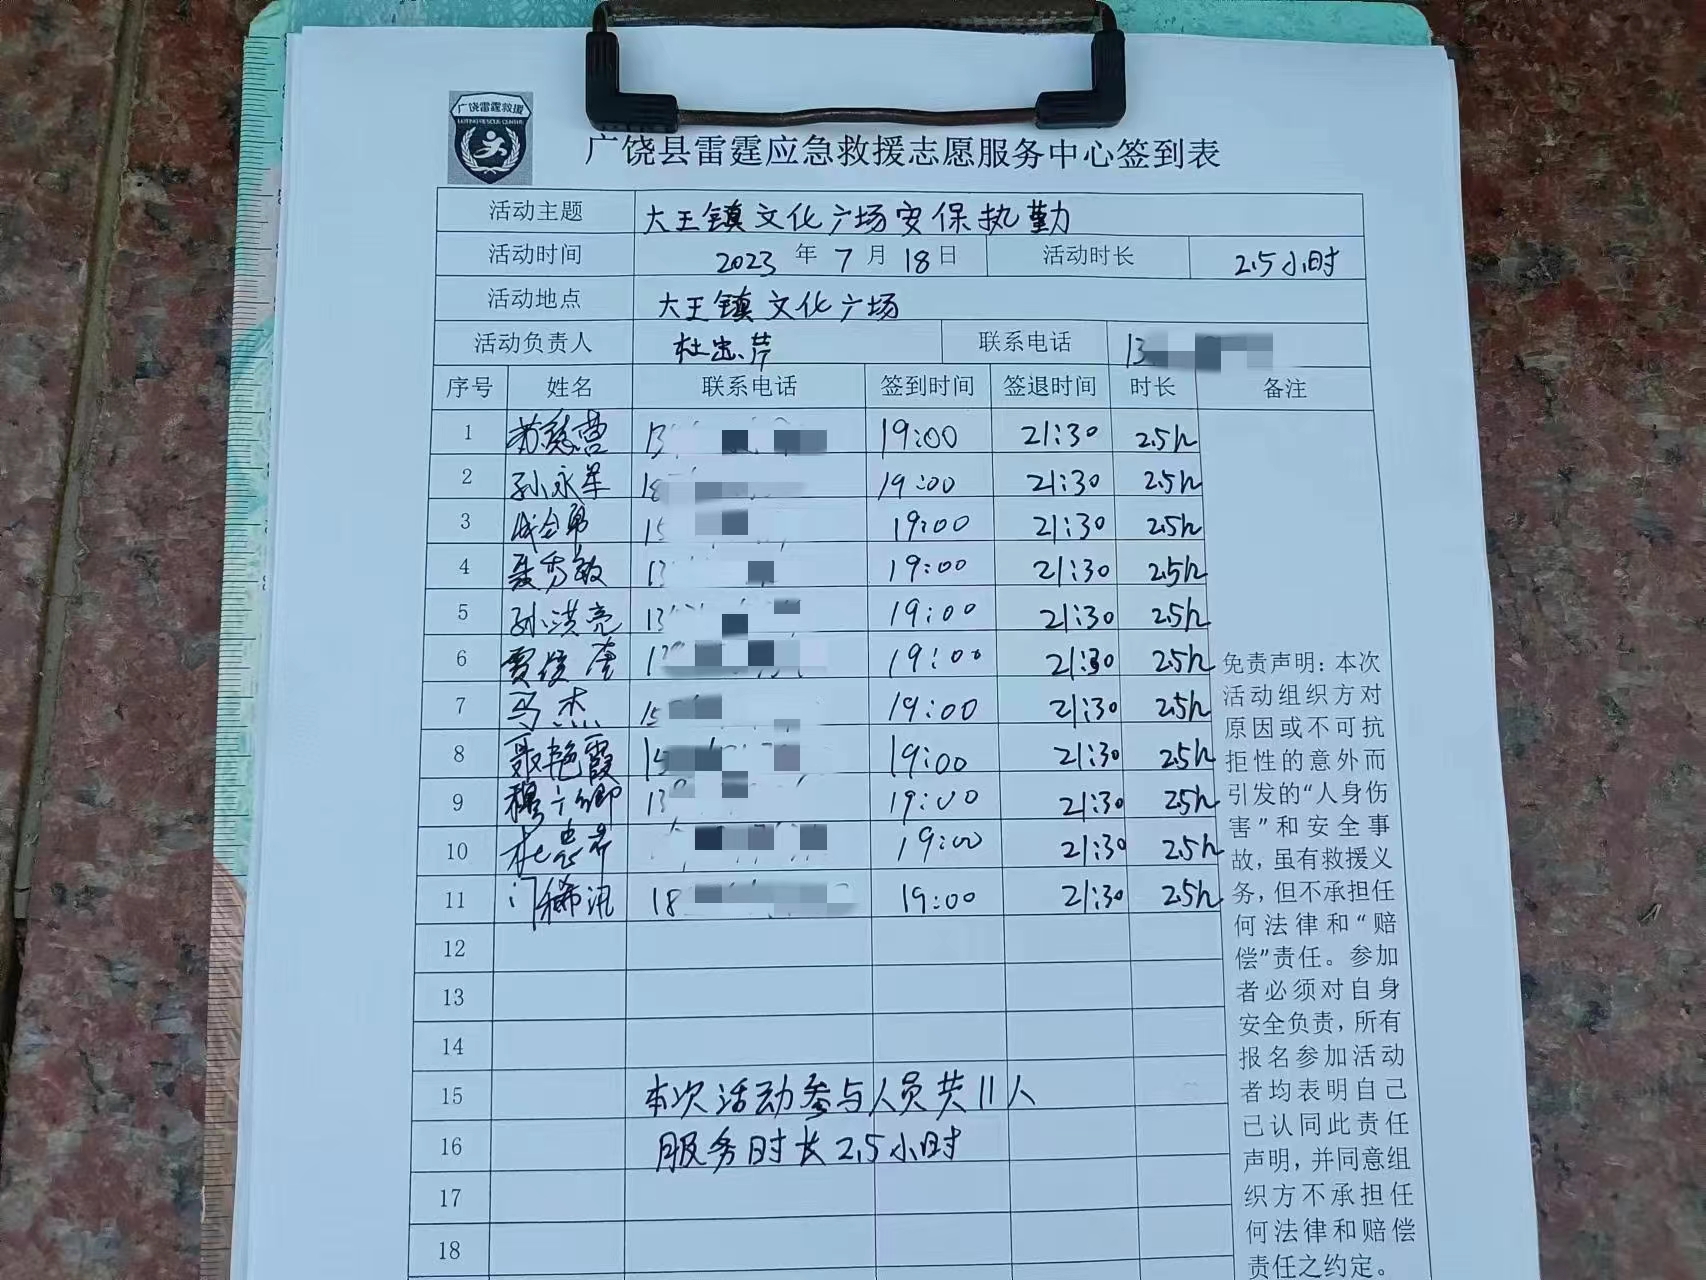 广饶雷霆救援
广饶县雷霆应急救援志愿服务中心签到表
活动主题 大王镇文化广场安保执勤
活动时间 2023 年 7 月 18 日 活动时长 2.5小时
活动地点 大王镇文化广场
活动负责人 杜忠芹 联系电话 13
序号 姓名 联系电话 签到时间 签退时间 时长 备注
1 13 19:00 21:30 2.5h
2 孙永军 18 19:00 21:30 2.5h
3 15 19:00 21:30 2.5h
4 聂秀敏 13 19:00 21:30 2.5h
5 孙洪亮 13 19:00 21:30 2.5h
6 19:00 21:30 2.5h
7 马杰 15 19:00 21:30 2.5h
8 聂艳霞 15 19:00 21:30 2.5h
9 13 19:00 21:30 2.5h
10 杜忠芹 19:00 21:30 2.5h
11 18 19:00 21:30 2.5h
12
13
14
15 本次活动参与人员共11人
16 服务时长2.5小时
17
18
免责声明：本次
活动组织方对
原因或不可抗
拒性的意外而
引发的“人身伤
害”和安全事
故，虽有救援义
务，但不承担任
何法律和“赔
偿”责任。参加
者必须对自身
安全负责，所有
报名参加活动
者均表明自己
已认同此责任
声明，并同意组
织方不承担任
何法律和赔偿
责任之约定。